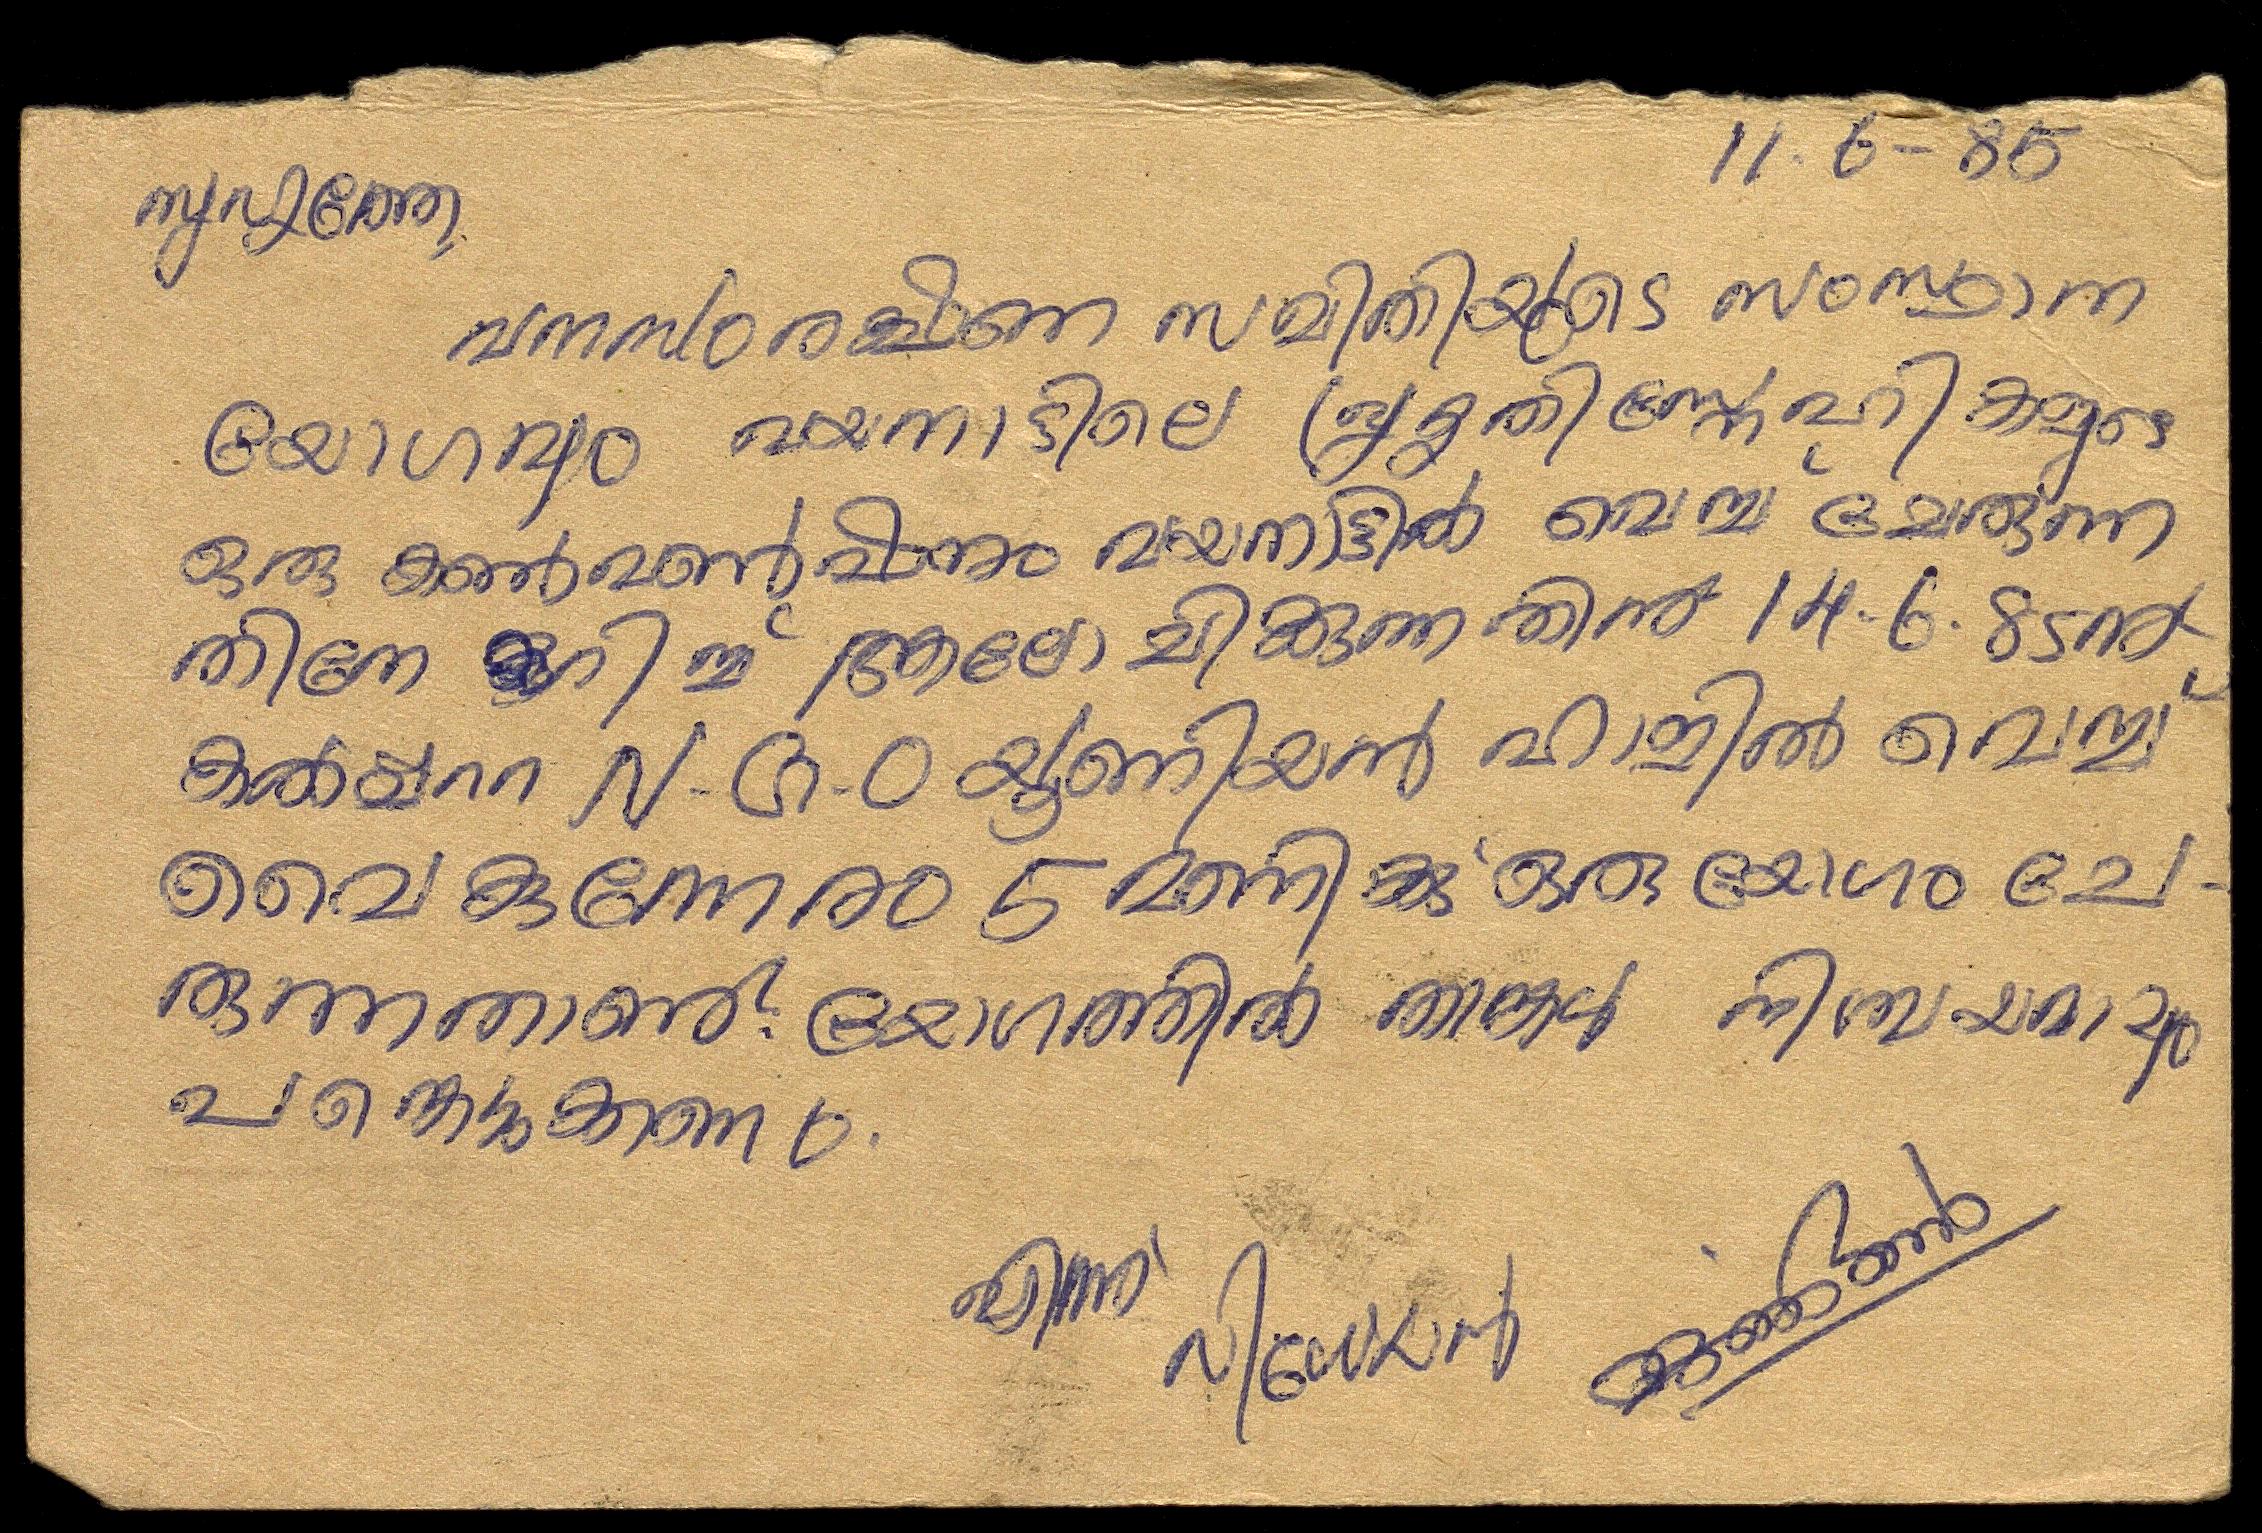 11.6-85
സുഹൃത്തേ,
വനസംരക്ഷണ സമിതിയുടെ സംസ്ഥാന
യോഗവും വയനാട്ടിലെ പ്രകൃതിസ്നേഹികളുടെ
ഒരു കൺവെൻഷനും വയനാട്ടിൽ വെച്ച് ചേരുന്ന
തിനെ കുറിച്ച് ആലോചിക്കുന്നതിന് 14.6.85ന്
കൽപ്പറ്റ N.G.O യൂണിയൻ ഹാളിൽ വെച്ച്
വൈകുന്നേരം 5 മണിക്ക് ഒരു യോഗം ചേ-
രുന്നതാണ്. യോഗത്തിൽ താങ്കൾ നിശ്ചയമായും
പങ്കെടുക്കണം.
എന്ന്
വിധേയൻ